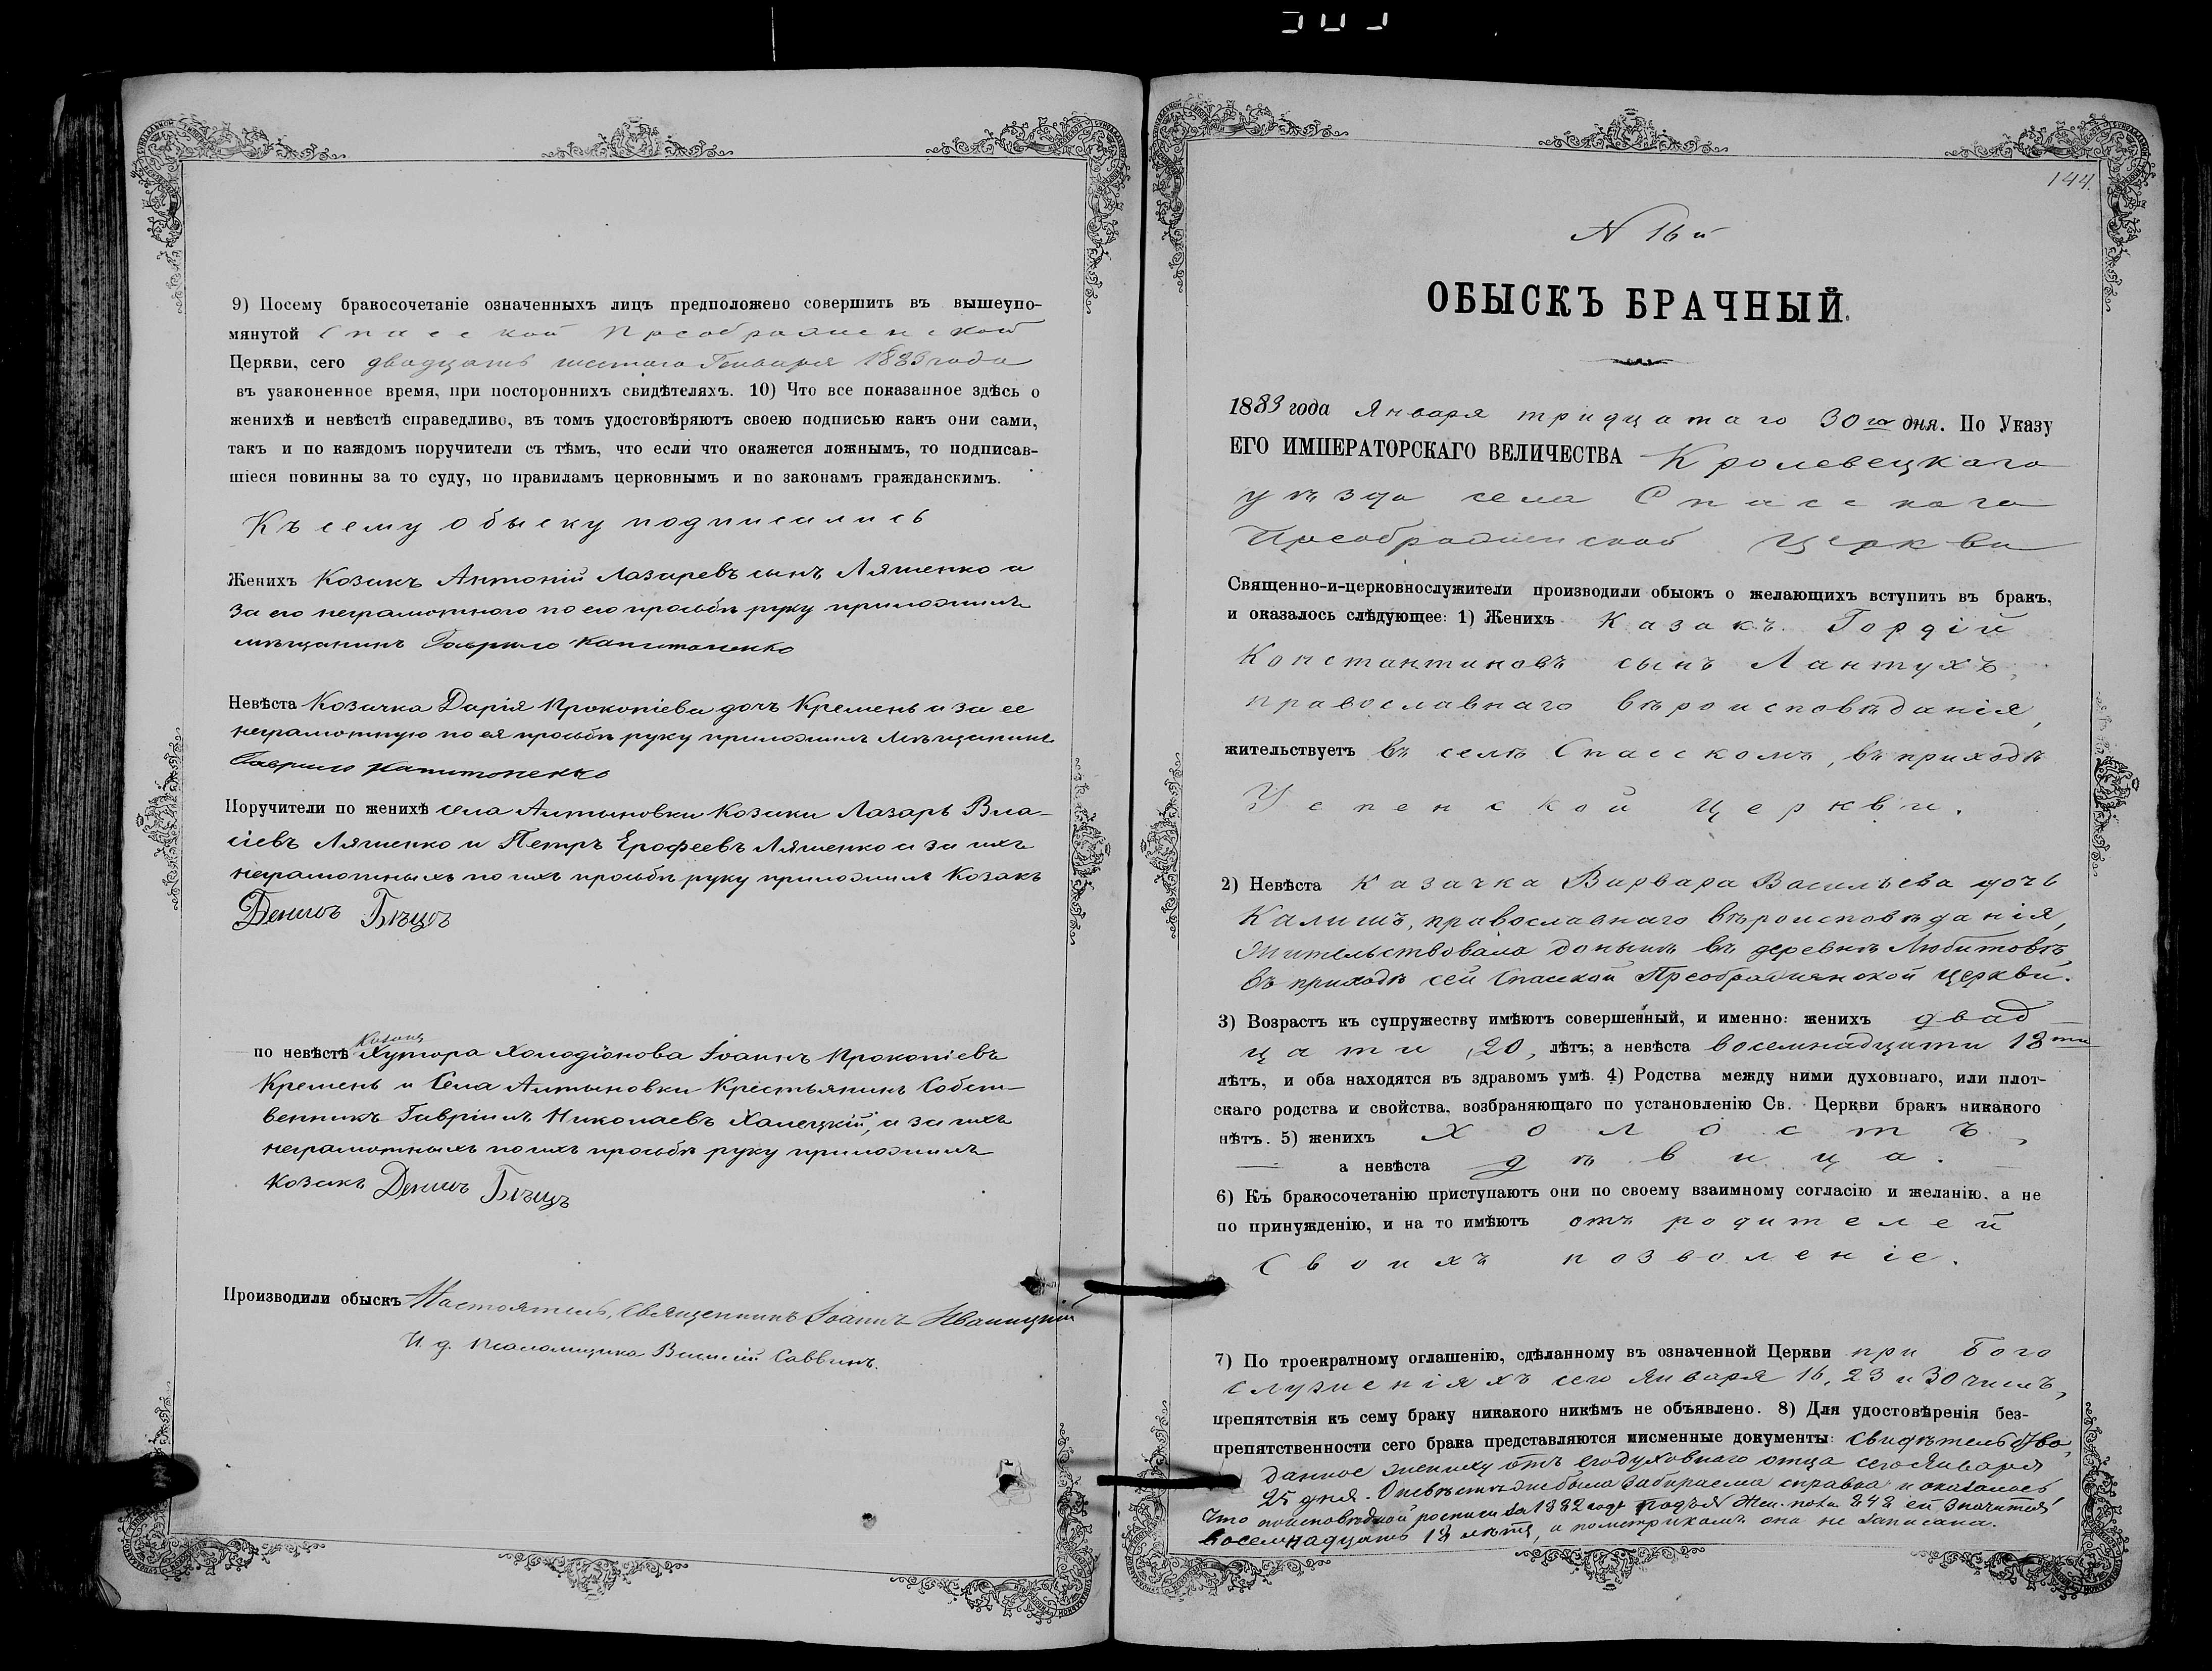 9) Посему бракосочетаніе означенныхъ лицъ предположено совершить въ вышеупо-
мянутой Спасской Преображенской
Церкви, сего двадцать шестаго Генваря 1883 года
въ узаконенное время, при постороннихъ свидѣтеляхъ. 10) Что все показанное здѣсь о
женихѣ и невѣстѣ справедливо, въ томъ удостовѣряютъ своею подписью какъ они сами,
такъ и по каждомъ поручители съ тѣмъ, что если что окажется ложнымъ, то подписав-
шіеся повинны за то суду, по правиламъ церковнымъ и по законамъ гражданскимъ.
Къ сему обыску подписались
Женихъ Козакъ Антоній Лазаревъ сынъ Ляшенко а
за его неграмотного по его просьбѣ руку приложилъ
мѣщанинъ Гаврило Капитоненко
Невѣста Козачка Дарія Прокопіева дочъ Кремень а за ее
неграмотную по ея просьбѣ руку приложилъ Мѣщанинъ
Гаврило Капитоненко
Поручители по женихѣ села Алтыновки Козаки Лазаръ Вла-
сіевъ Ляшенко и Петръ Ерофеевъ Ляшенко а за ихъ
неграмотныхъ по ихъ просьбѣ руку приложилъ Козакъ
Денисъ Бѣцъ
Козакъ
по невѣстѣ Хутора Холодіонова Іоанъ Прокопіевъ
Кремень и Села Алтыновки Крестьянинъ Собст-
венникъ Гавріилъ Николаевъ Халецкій, а за ихъ
неграмотныхъ по ихъ просьбѣ руку приложилъ
Козакъ Денисъ Бѣцъ
Производили обыскъ Настоятель, Священникъ Іоаннъ Иваницкій
И. д. псаломщика Василій Саввинъ.
144.
N 16й
ОБЫСКЪ БРАЧНЫЙ.
1883 года Января тридцатаго 30го дня. По Указу
ЕГО ИМПЕРАТОРСКАГО ВЕЛИЧЕСТВА Кролевецкаго
уѣзда села Спасскаго
Преображенской Церкви
Священно-и-церковнослужители производили обыскъ о желающихъ вступить въ бракъ,
и оказалось слѣдующее: 1) Женихъ Казакъ Гордій
Константиновъ сынъ Лантухъ,
православнаго вѣроисповѣданія,
жительствуетъ въ селѣ Спасскомъ, въ приходѣ
Успенской Церкви.
2) Невѣста Казачка Варвара Васильева дочь
Калишъ, православнаго вѣроисповѣданія,
жительствовала донынѣ въ деревнѣ Любитовкѣ,
въ приходѣ сей Спаской Преображенской Церкви.
3) Возрастъ къ супружеству имѣютъ совершенный, и именно: женихъ двад
цати 20, лѣтъ; а невѣста восемнадцати 18ти
лѣтъ, и оба находятся въ здравомъ умѣ. 4) Родства между ними духовнаго, или плот-
скаго родства и свойства, возбраняющаго по установленію Св. Церкви бракъ никакого
нѣтъ. 5) женихъ холостъ,
а невѣста дѣвица.
6) Къ бракосочетанію приступаютъ они по своему взаимному согласію и желанію, а не
по принужденію, и на то имѣютъ отъ родителей
своихъ позволеніе.
7) По троекратному оглашенію, сдѣланному въ означенной Церкви при Бого
служеніяхъ сего Января 16, 23 и 30 числъ,
препятствія къ сему браку никакого никѣмъ не объявлено. 8) Для удостовѣренія без-
препятственности сего брака представляются письменные документы: Свидѣтельство,
данное жениху отъ его духовнаго отца сего Января
25 дня. О невѣстѣ же была забираема справка и оказалось
что по исповѣдной росписи за 1882 годъ подъ № жен. пола 248 ей значится
восемнадцать 18 лѣтъ, а по метрикамъ она не записана.